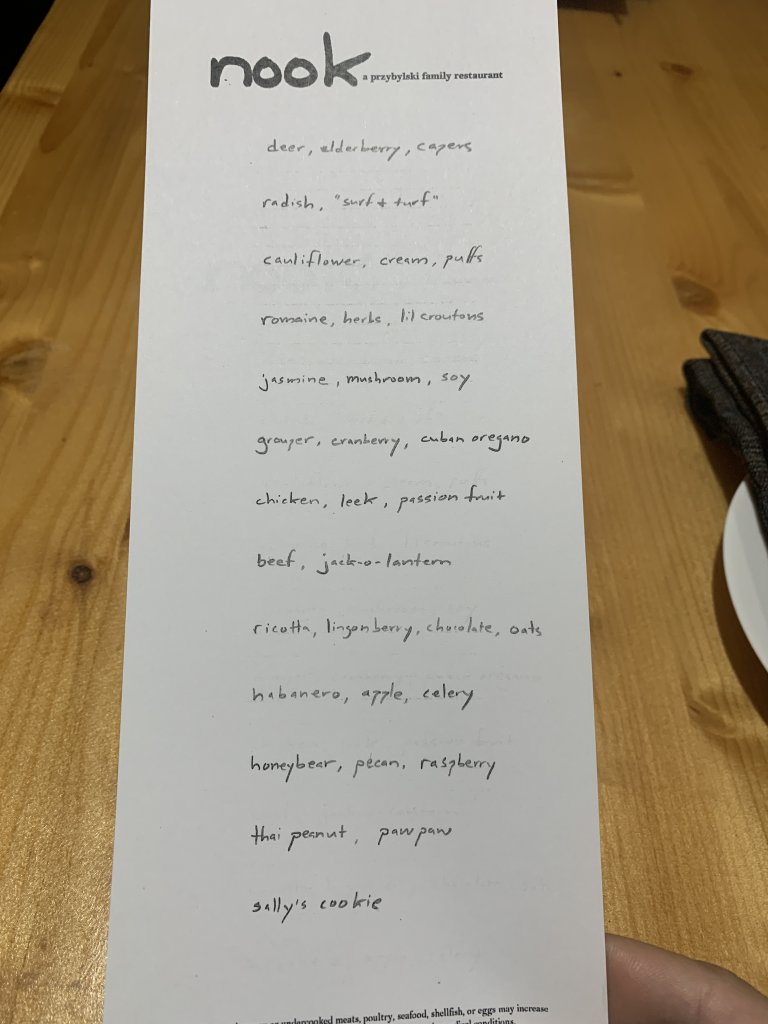 nook a przybylski family restaurant
deer, elderberry, capers
radish, "surf + turf"
cauliflower, cream, puffs
romaine, herbs, lil croutons
jasmine, mushroom, soy
grouper, cranberry, cuban oregano
chicken, leek, passion fruit
beef, jack-o-lantern
ricotta, lingonberry, chocolate, oats
habanero, apple, celery
honeybear, pecan, raspberry
thai peanut, pawpaw
sally's cookie
undercooked meats, poultry, seafood, shellfish, or eggs may increase
conditions.